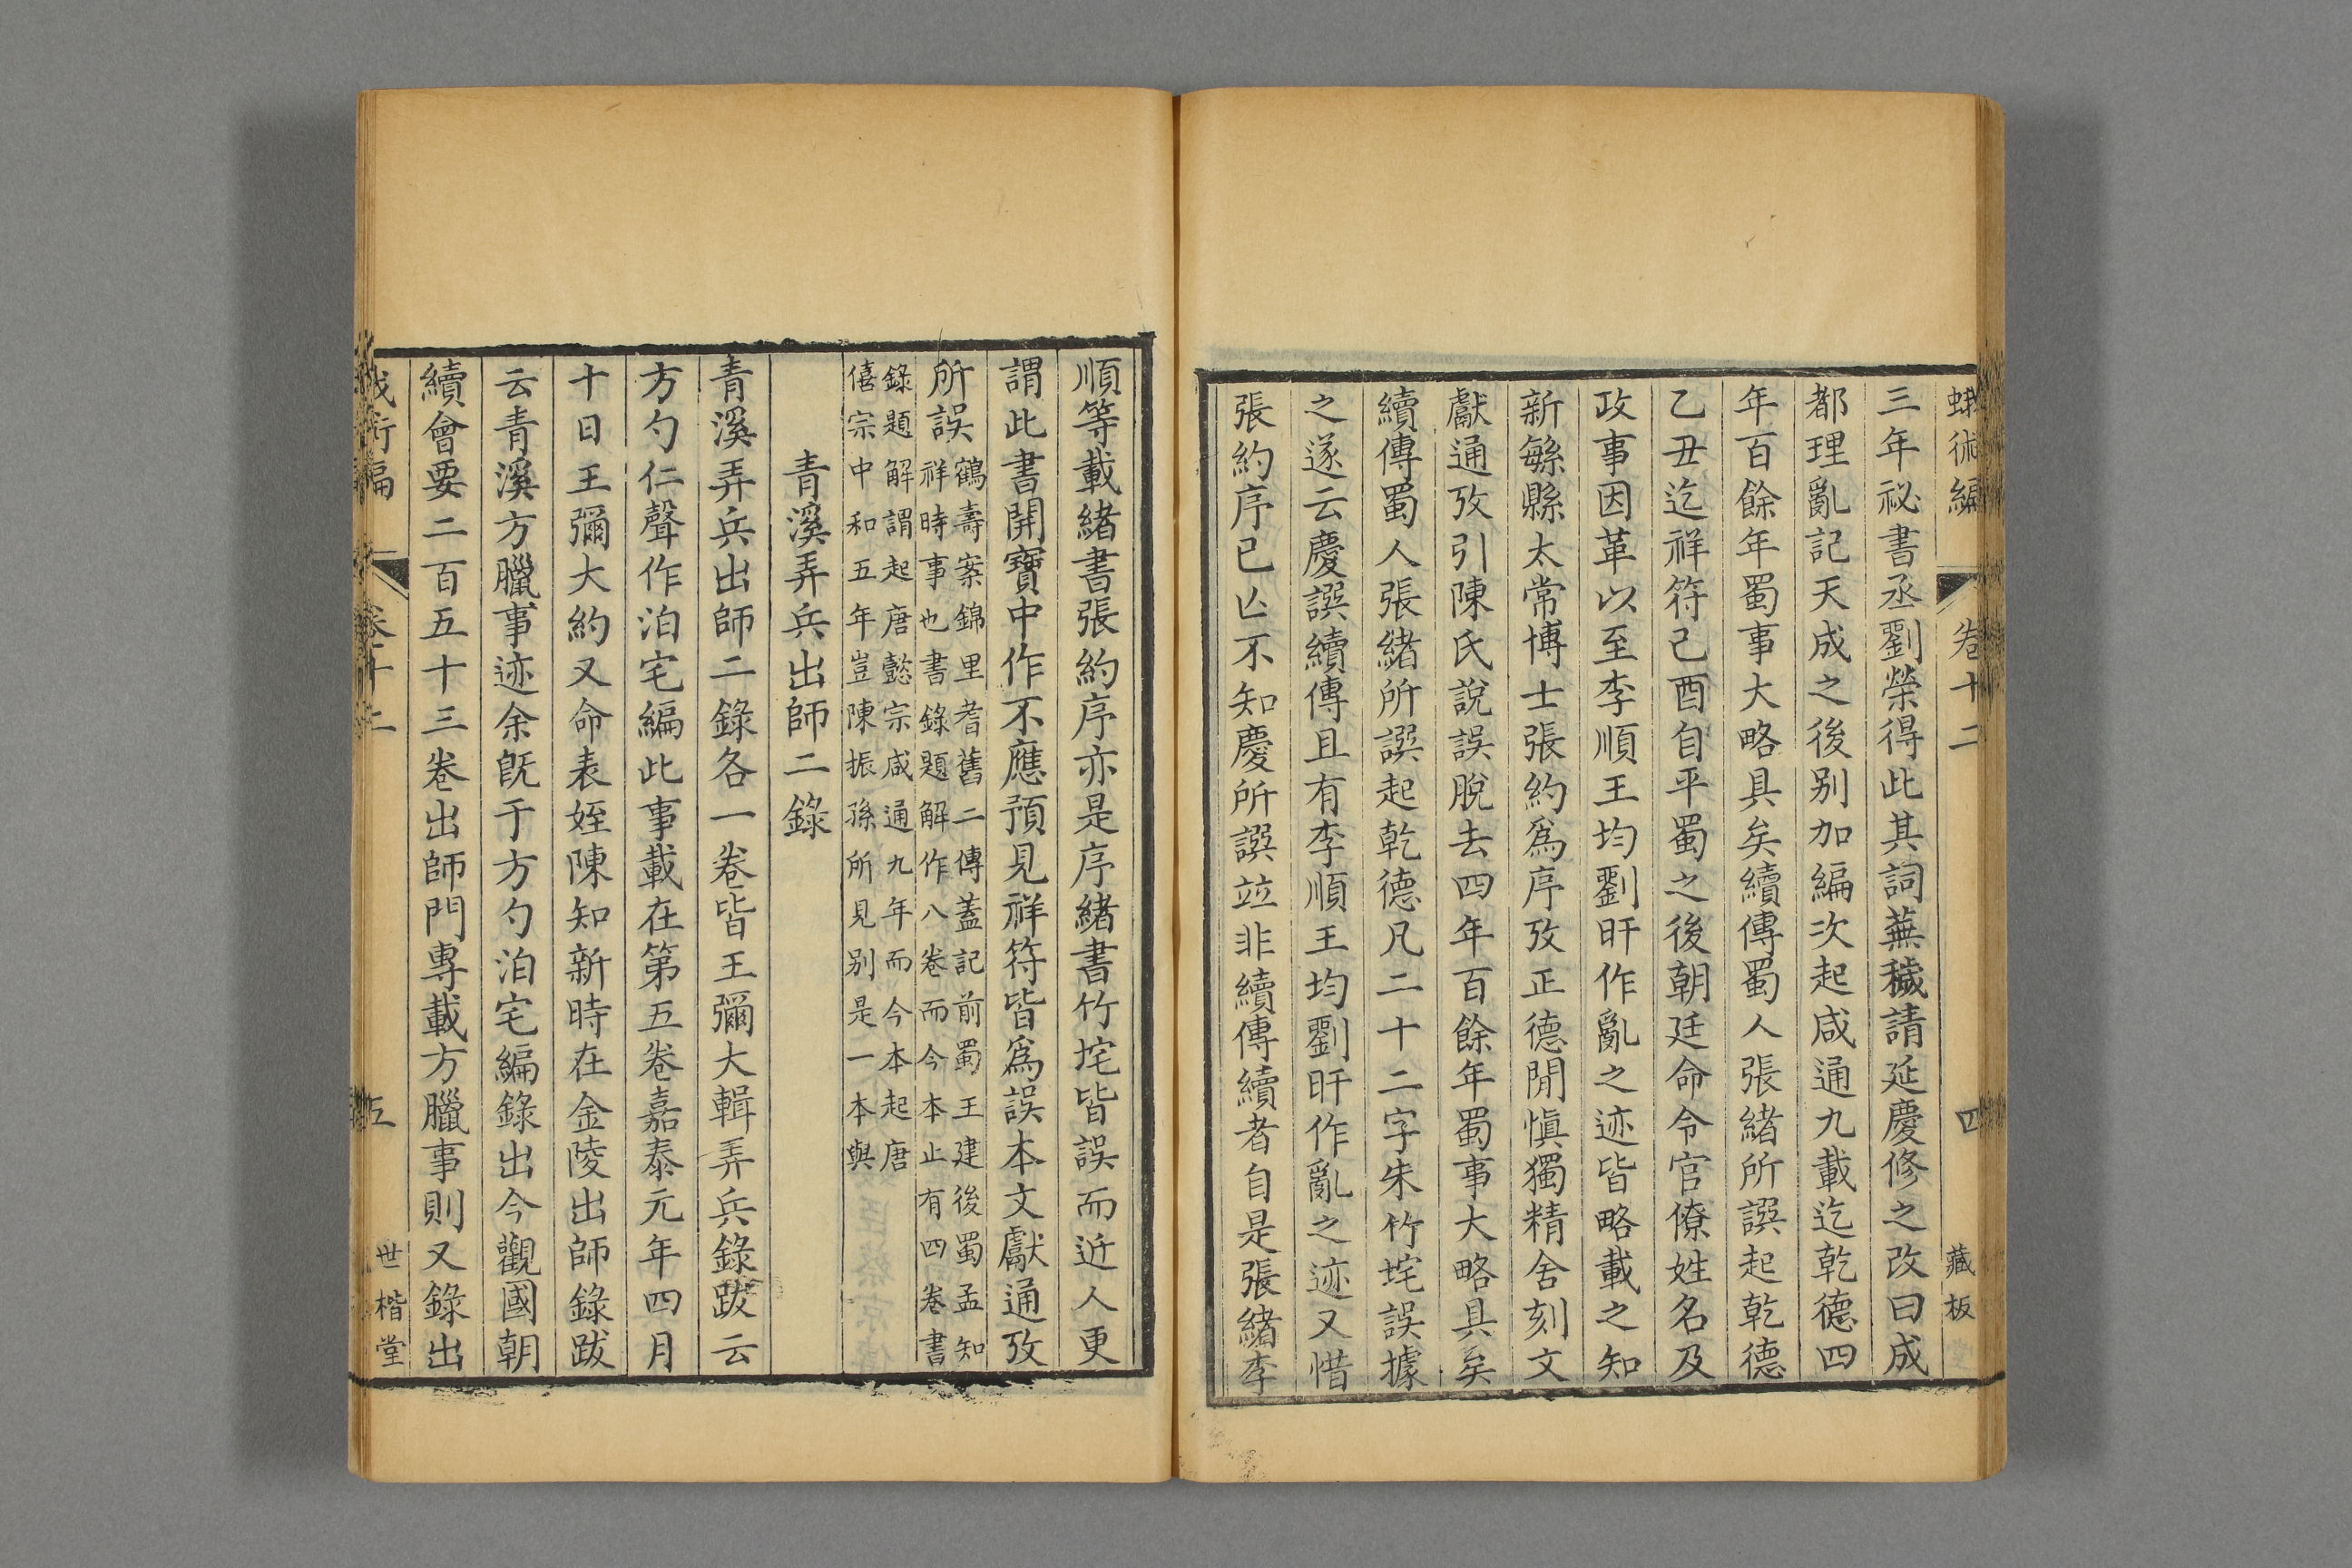 蛾術編 卷十二 四 藏板
三年祕書丞劉榮得此其詞蕪穢請延慶修之改曰成
都理亂記天成之後别加編次起咸通九載迄乾德四
年百餘年蜀事大略具矣續傳蜀人張緒所譔起乾德
乙丑迄祥符己酉自平蜀之後朝廷命令官僚姓名及
政事因革以至李順王均劉旰作亂之迹皆略載之知
新繁縣太常博士張約爲序攷正德閒愼獨精舍刻文
獻通攷引陳氏說誤脫去四年百餘年蜀事大略具矣
續傳蜀人張緒所譔起乾德凡二十二字朱竹垞誤據
之遂云慶譔續傳且有李順王均劉旰作亂之迹又惜
張約序已亾不知慶所譔竝非續傳續者自是張緒李
順等載緒書張約序亦是序緒書竹垞皆誤而近人更
謂此書開寶中作不應預見祥符皆爲誤本文獻通攷
所誤
鶴壽案錦里耆舊二傳蓋記前蜀王建後蜀孟知
祥時事也書錄題解作八卷而今本止有四卷書
錄題解謂起唐懿宗咸通九年而今本起唐
僖宗中和五年豈陳振孫所見别是一本與
青溪弄兵出師二錄
青溪弄兵出師二錄各一卷皆王彌大輯弄兵錄跋云
方勺仁聲作泊宅編此事載在第五卷嘉泰元年四月
十日王彌大約又命表姪陳知新時在金陵出師錄跋
云青溪方臘事迹余旣于方勺泊宅編錄出今觀國朝
續會要二百五十三卷出師門專載方臘事則又錄出
蛾術編 卷十二 五 世楷堂